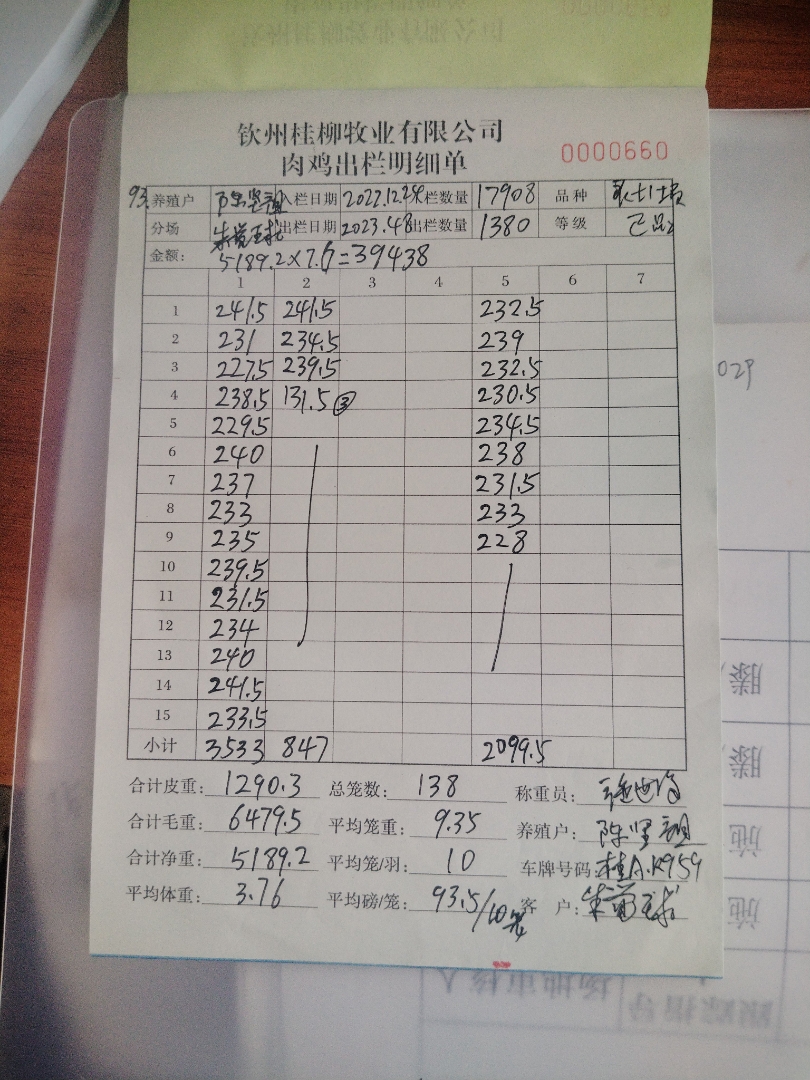 钦州桂柳牧业有限公司
肉鸡出栏明细单
0000660
93. 养殖户 陈坚祖 入栏日期 2022.12.24 栏数量 17908 品种
分场 出栏日期 2023.4.8 出栏数量 1380 等级
金额: 5189.2×7.6=39438
1 2 3 4 5 6 7
1 241.5 241.5 232.5
2 231 234.5 239
3 227.5 239.5 232.5
4 238.5 131.5 ③ 230.5
5 229.5 234.5
6 240 238
7 237 231.5
8 233 233
9 235 228
10 239.5
11 231.5
12 234
13 240
14 241.5
15 233.5
小计 3533 847 2099.5
合计皮重: 1290.3 总笼数: 138 称重员:
合计毛重: 6479.5 平均笼重: 9.35 养殖户: 陈坚祖
合计净重: 5189.2 平均笼/羽: 10 车牌号码: 桂A.K959
平均体重: 3.76 平均磅/笼: 93.5/10笼 客户:
029
滕
滕
施
施
场地审核人
跟踪指导